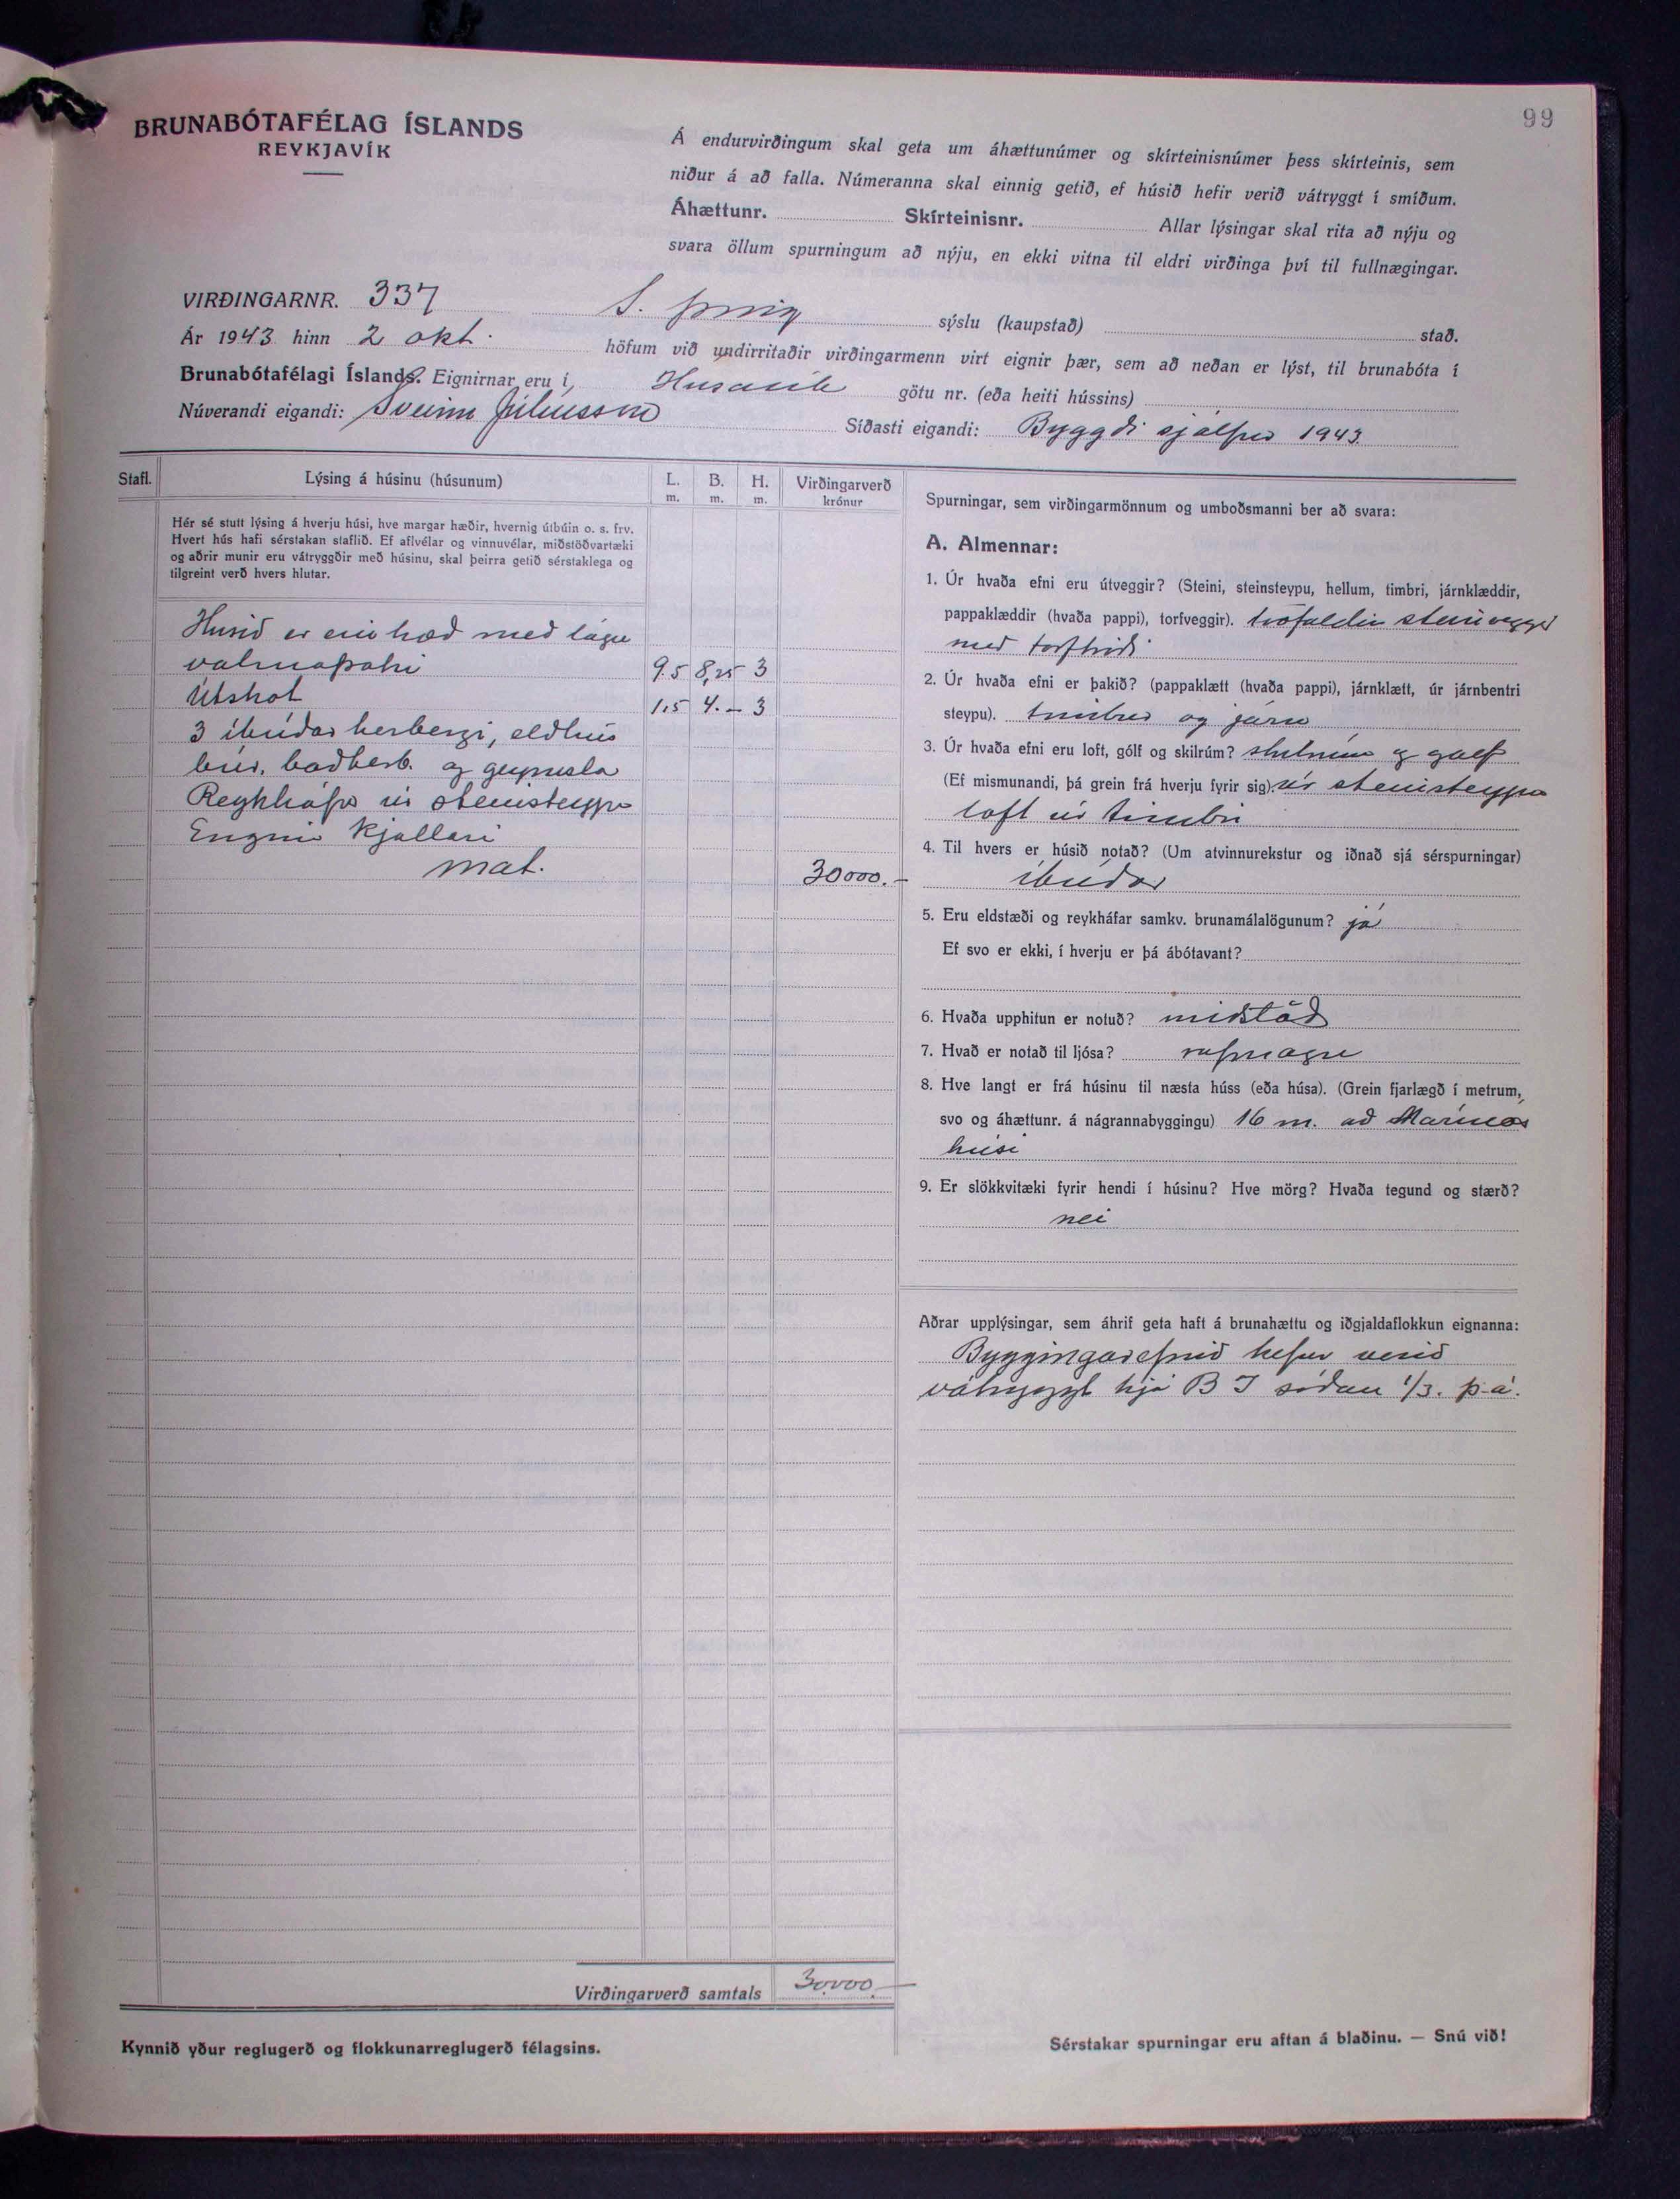 99
BRUNABÓTAFÉLAG ÍSLANDS
REYKJAVÍK
Á endurvirðingum skal geta um áhættunúmer og skírteinisnúmer þess skírteinis, sem
niður á að falla. Númeranna skal einnig getið, ef húsið hefir verið vátryggt í smíðum.
Áhættunr. Skírteinisnr. Allar lýsingar skal rita að nýju og
svara öllum spurningum að nýju, en ekki vitna til eldri virðinga því til fullnægingar.
VIRÐINGARNR. 337 S. Þing sýslu (kaupstað) stað.
Ár 1943 hinn 2 okt. höfum við undirritaðir virðingarmenn virt eignir þær, sem að neðan er lýst, til brunabóta í
Brunabótafélagi Íslands. Eignirnar eru í Husavík götu nr. (eða heiti hússins)
Núverandi eigandi: Sveinn Júlíusson Síðasti eigandi: Byggði sjálfur 1943
Stafl. Lýsing á húsinu (húsunum) L. m. B. m. H. m. Virðingarverð krónur
Hér sé stutt lýsing á hverju húsi, hve margar hæðir, hvernig útbúin o. s. frv.
Hvert hús hafi sérstakan staflið. Ef aflvélar og vinnuvélar, miðstöðvartæki
og aðrir munir eru vátryggðir með húsinu, skal þeirra getið sérstaklega og
tilgreint verð hvers hlutar.
Husið er ein hæð með lágu
valmaþaki 9.5 8,25 3
Útskot 1,5 4.- 3
3 íbúðar herbergi, eldhús
búr, baðherb. og geymsla
Reykháfur úr steinsteypu
Enginn kjallari
mat. 30000.-
Virðingarverð samtals 30.000.-
Kynnið yður reglugerð og flokkunarreglugerð félagsins.
Spurningar, sem virðingarmönnum og umboðsmanni ber að svara:
A. Almennar:
1. Úr hvaða efni eru útveggir? (Steini, steinsteypu, hellum, timbri, járnklæddir,
pappaklæddir (hvaða pappi), torfveggir). tvöfaldir steinveggir
með torftróði
2. Úr hvaða efni er þakið? (pappaklætt (hvaða pappi), járnklætt, úr járnbentri
steypu). timbur og járn
3. Úr hvaða efni eru loft, gólf og skilrúm? skilrúm og golf
(Ef mismunandi, þá grein frá hverju fyrir sig) úr steinsteypu
loft úr timbri
4. Til hvers er húsið notað? (Um atvinnurekstur og iðnað sjá sérspurningar)
íbúðar
5. Eru eldstæði og reykháfar samkv. brunamálalögunum? já
Ef svo er ekki, í hverju er þá ábótavant?
6. Hvaða upphitun er notuð? miðstöð
7. Hvað er notað til ljósa? rafmagn
8. Hve langt er frá húsinu til næsta húss (eða húsa). (Grein fjarlægð í metrum,
svo og áhættunr. á nágrannabyggingu) 16 m. að Marínós
húsi
9. Er slökkvitæki fyrir hendi í húsinu? Hve mörg? Hvaða tegund og stærð?
nei
Aðrar upplýsingar, sem áhrif geta haft á brunahættu og iðgjaldaflokkun eignanna:
Byggingarefnið hefur verið
vátryggt hjá B I síðan 1/3. þ.á.
Sérstakar spurningar eru aftan á blaðinu. — Snú við!